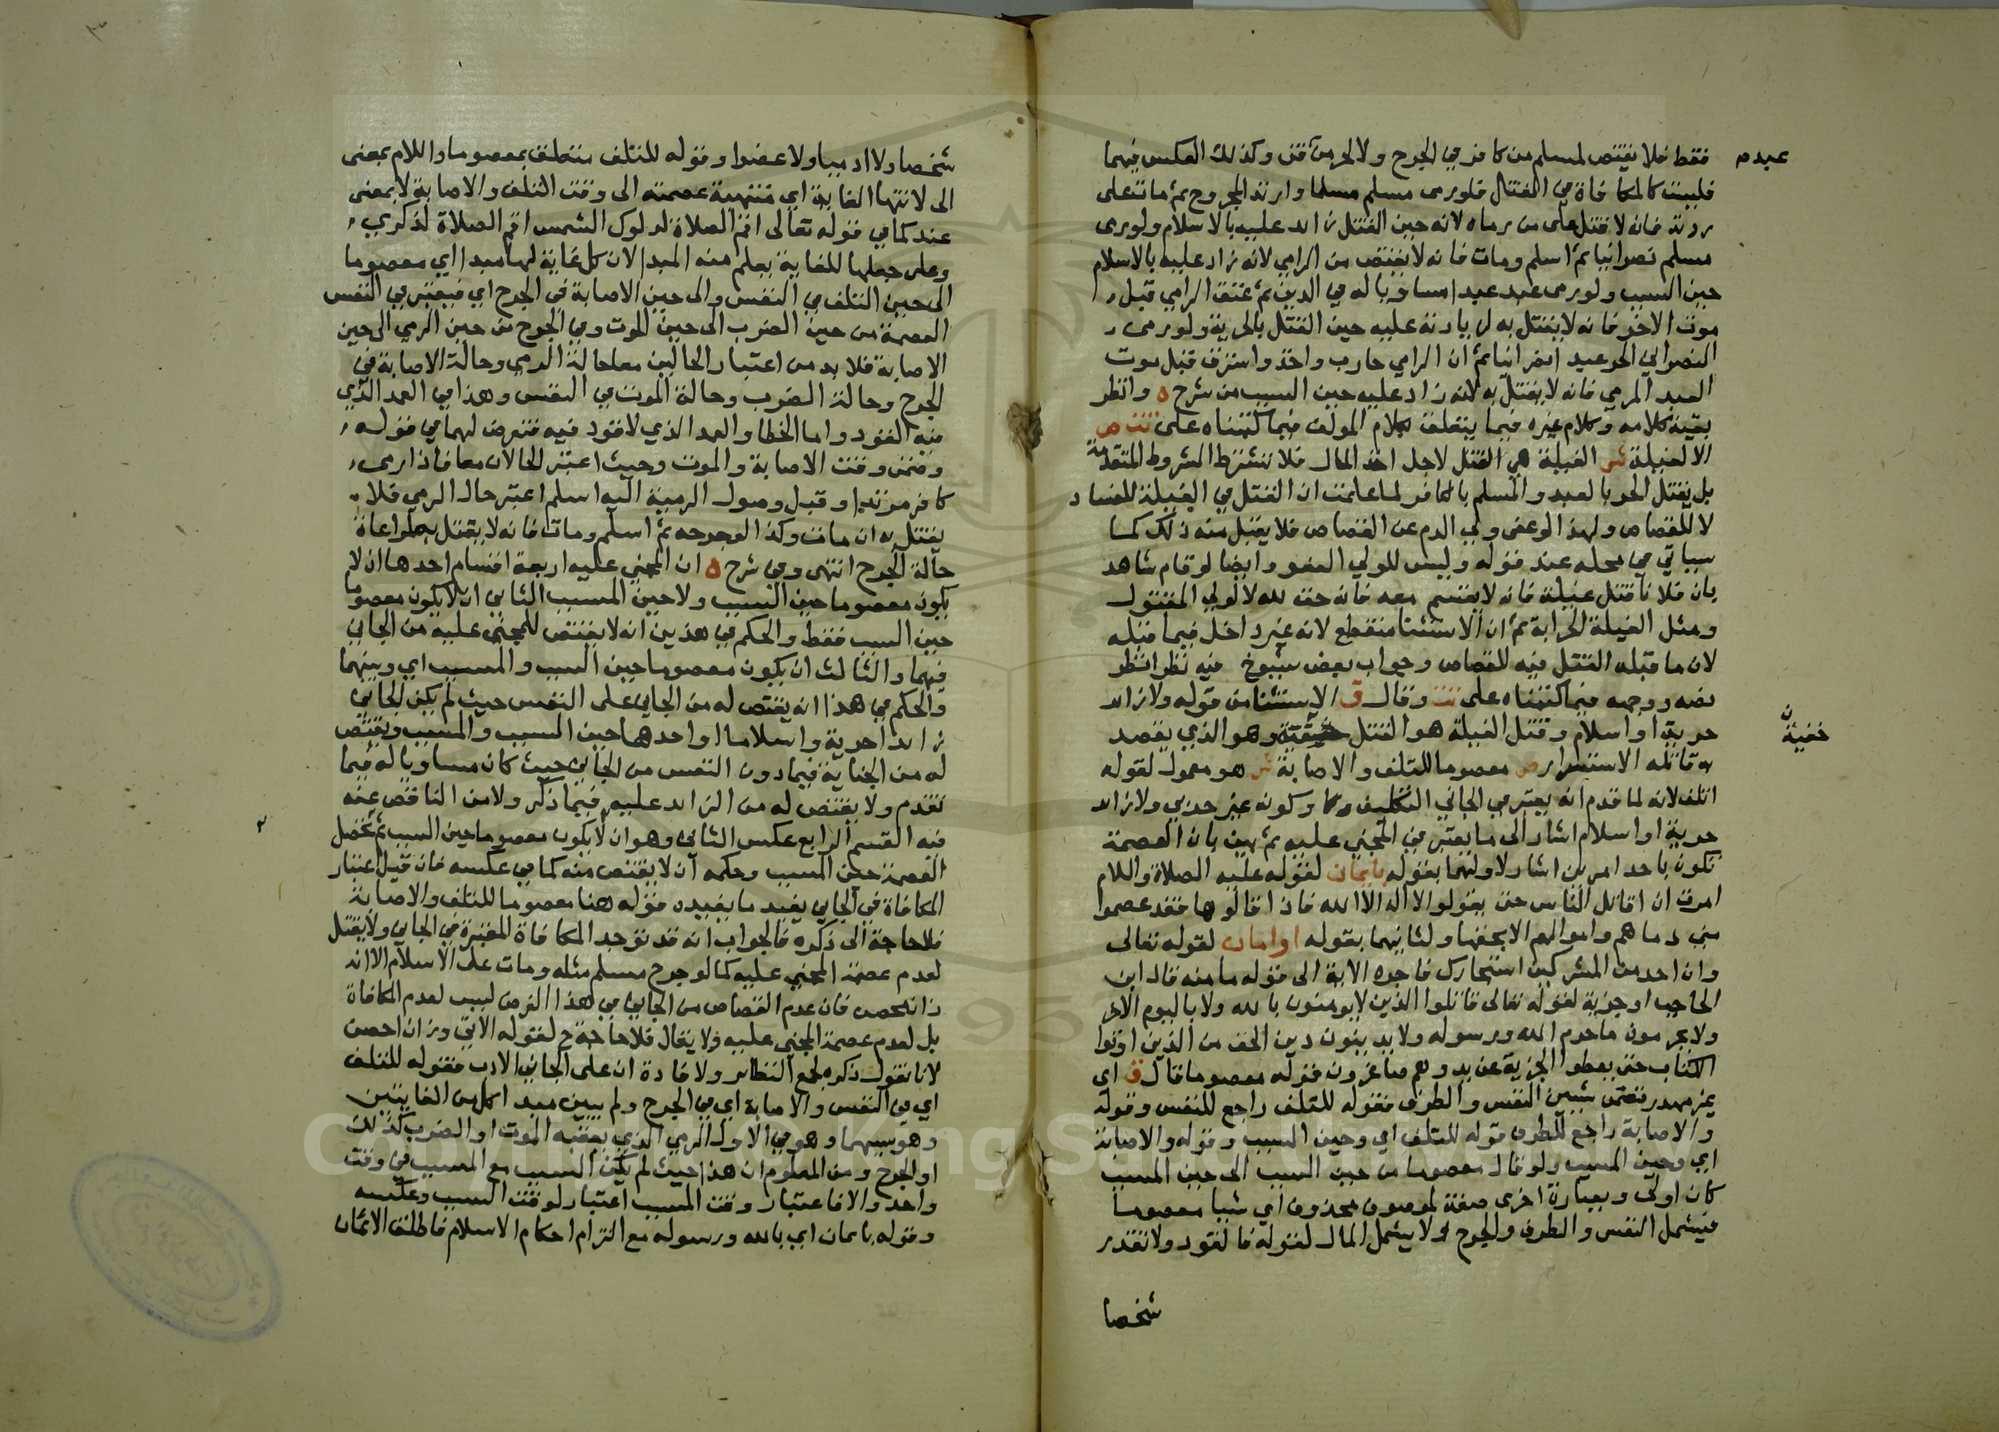 فقط فلا يقتص لمسلم من كافر في الجرح ولا لحر من قن وكذلك العكس فيهما
عبدم
فليست كالمكافاة في القتل فلو رمى مسلم مسلما وارتد المجروح ثم مات على
ردته فانه لا قتل على من رماه لانه حين القتل زائد عليه بالاسلام ولو رمى
مسلم نصرانيا ثم اسلم ومات فانه لا يقتص من الرامي لانه زاد عليه بالاسلام
حين السبب ولو رمى عبد عبدا مساويا له في الدين ثم عتق الرامي قبل
موت الاخر فانه لا يقتل به لزيادته عليه حين القتل بالحرية ولو رمى
النصراني الحر عبدا نصرانيا ثم ان الرامي حارب واخذ واسترق قبل موت
العبد المرمي فانه لا يقتل به لانه زاد عليه حين السبب من شرح ه وانظر
بقية كلامه وكلام غيره فيما يتعلق بكلام المولف فيما كتبناه على تت ص
الا لغيلة ش الغيلة هي القتل لاجل اخذ المال فلا تشترط الشروط المتقدمة
بل يقتل الحر بالعبد والمسلم بالكافر لما علمت ان القتل في الغيلة للفساد
لا للقصاص ولهذا لو عفى ولي الدم عن القصاص فلا يقبل منه ذلك كما
سياتي في محله عند قوله وليس للولي العفو وايضا لو قام شاهد
بان فلانا قتل غيلة فانه لا يقسم معه فانه حق لله لا لولي المقتول
ومثل الغيلة الحرابة ثم ان الاستثنا منقطع لانه غير داخل فيما قبله
لان ما قبله القتل فيه للقصاص وجواب بعض شيوخ فيه نظر انظر
نصه ووجهه فيما كتبناه على تت وقال ق الاستثنا من قوله ولا زائد
حرية او اسلام وقتل الغيلة هو القتل وهو الذي يقصد
خفية
به قاتله الاستتار ص معصوما للتلف والاصابة ش هو معمول لقوله
اتلف لانه لما قدم انه يعتبر في الجاني التكليف وكونه غير حربي ولا زائد
حرية او اسلام اشار الى ما يعتبر في المجني عليه ثم بين بان العصمة
تكون باحد امرين اشار لاولهما بقوله بايمان لقوله عليه الصلاة والسلام
امرت ان اقاتل الناس حتى يقولوا لا اله الا الله فاذا قالوها فقد عصموا
مني دماهم واموالهم الا بحقها ولثانيهما بقوله او امان لقوله تعالى
وان احد من المشركين استجارك فاجره الاية الى قوله مامنه قال ابن
الحاجب او جزية لقوله تعالى قاتلوا الذين لا يومنون بالله ولا باليوم الاخر
ولا يحرمون ما حرم الله ورسوله ولا يدينون دين الحق من الذين اوتوا
الكتاب حتى يعطوا الجزية عن يد وهم صاغرون فقوله معصوما قال ق اي
غير مهدر تضمن شيئين النفس والطرف فقوله للتلف راجع للنفس وقوله
والاصابة راجع للطرف قوله للتلف اي وحين السبب وقوله والاصابة
اي وحين المسبب ولو قال معصوما من حين السبب الى حين المسبب
كان اولى وبعبارة اخرى صفة لموصوف محذوف اي شيا معصوما
فيشمل النفس والطرف والجرح ولا يشمل المال لقوله فالقود ولا تقدر
شخصا
شخصا ولا ادميا ولا عضوا وقوله للتلف متعلق بمعصوما واللام بمعنى
الى لانتها الغاية اي منتهية عصمته الى وقت التلف والاصابة لا بمعنى
عند كما في قوله تعالى اقم الصلاة لدلوك الشمس اقم الصلاة لذكري
وعلى جعلها للغاية يعلم منه المبدا لان كل غاية لها مبدا اي معصوما
الى حين التلف في النفس والى حين الاصابة في الجرح اي فيعتبر في النفس
العصمة من حين الضرب الى حين الموت وفي الجرح من حين الرمي الى حين
الاصابة فلا بد من اعتبار الحالين معا حالة الرمي وحالة الاصابة في
الجرح وحالة الضرب وحالة الموت في النفس وهذا في العمد الذي
فيه القود واما الخطا والعمد الذي لا قود فيه فتعرض لهما في قوله
وضمن وقت الاصابة والموت وحيث اعتبر الحالان معا فاذا رمى
كافر مرتدا وقبل وصول الرمية اليه اسلم اعتبر حال الرمي فلا
يقتل به ان مات وكذا لو جرحه ثم اسلم ومات فانه لا يقتل به مراعاة
حالة الجرح انتهى وفي شرح ه ان المجني عليه اربعة اقسام احدها ان لا
يكون معصوما حين السبب ولا حين المسبب الثاني ان لا يكون معصوما
حين السبب فقط والحكم في هذين انه لا يقتص للمجني عليه من الجاني
فيهما والثالث ان يكون معصوما حين السبب والمسبب اي وبينهما
والحكم في هذا انه يقتص له من الجاني على النفس حيث لم يكن الجاني
زائدا حرية واسلاما او احدهما حين السبب والمسبب ويقتص
له من الجناية فيما دون النفس من الجاني حيث كان مساويا له فيما
تقدم ولا يقتص له من الزائد عليه فيما ذكر ولا من الناقص عنه
فيه القسم الرابع عكس الثاني وهو ان لا يكون معصوما حين السبب ثم تحصل
العصمة حين المسبب وحكمه ان لا يقتص منه كما في عكسه فان قيل اعتبار
المكافاة في الجاني يفيد ما يفيده قوله هنا معصوما للتلف والاصابة
فلا حاجة الى ذكره فالجواب انه قد توجد المكافاة المعتبرة في الجاني ولا يقتل
لعدم عصمة المجني عليه كما لو جرح مسلم مثله ومات على الاسلام الا انه
زان محصن فان عدم القصاص من الجاني في هذا الفرض ليس لعدم المكافاة
بل لعدم عصمة المجني عليه ولا يقال فلا حاجة ح لقوله الاتي وزان احصن
لانا نقول ذكره لجمع النظائر ولافادة ان على الجاني الادب فقوله للتلف
اي في النفس والاصابة اي في الجرح ولم يبين مبدا كل من الغايتين
وهو سببهما وهو في الاول الرمي الذي يعقبه الموت او الضرب كذلك
او الجرح ومن المعلوم ان هذا حيث لم يكن السبب مع المسبب في وقت
واحد والا فاعتبار وقت المسبب اعتبار لوقت السبب وعكسه
وقوله بايمان اي بالله ورسوله مع التزام احكام الاسلام فاطلق الايمان